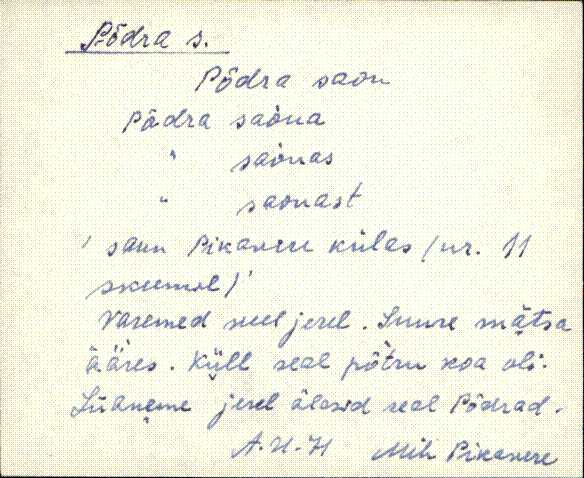 Põdra s.
Põdra saon
Põdra saòna
" saònas
" saonast
' saun Pikavere külas (nr. 11
skeemil)'
Varemed neel jerel. Suure mätsa
ääres. Küll seal põtru koa oli.
jerel älasid seal Põdrad.
Pikavere